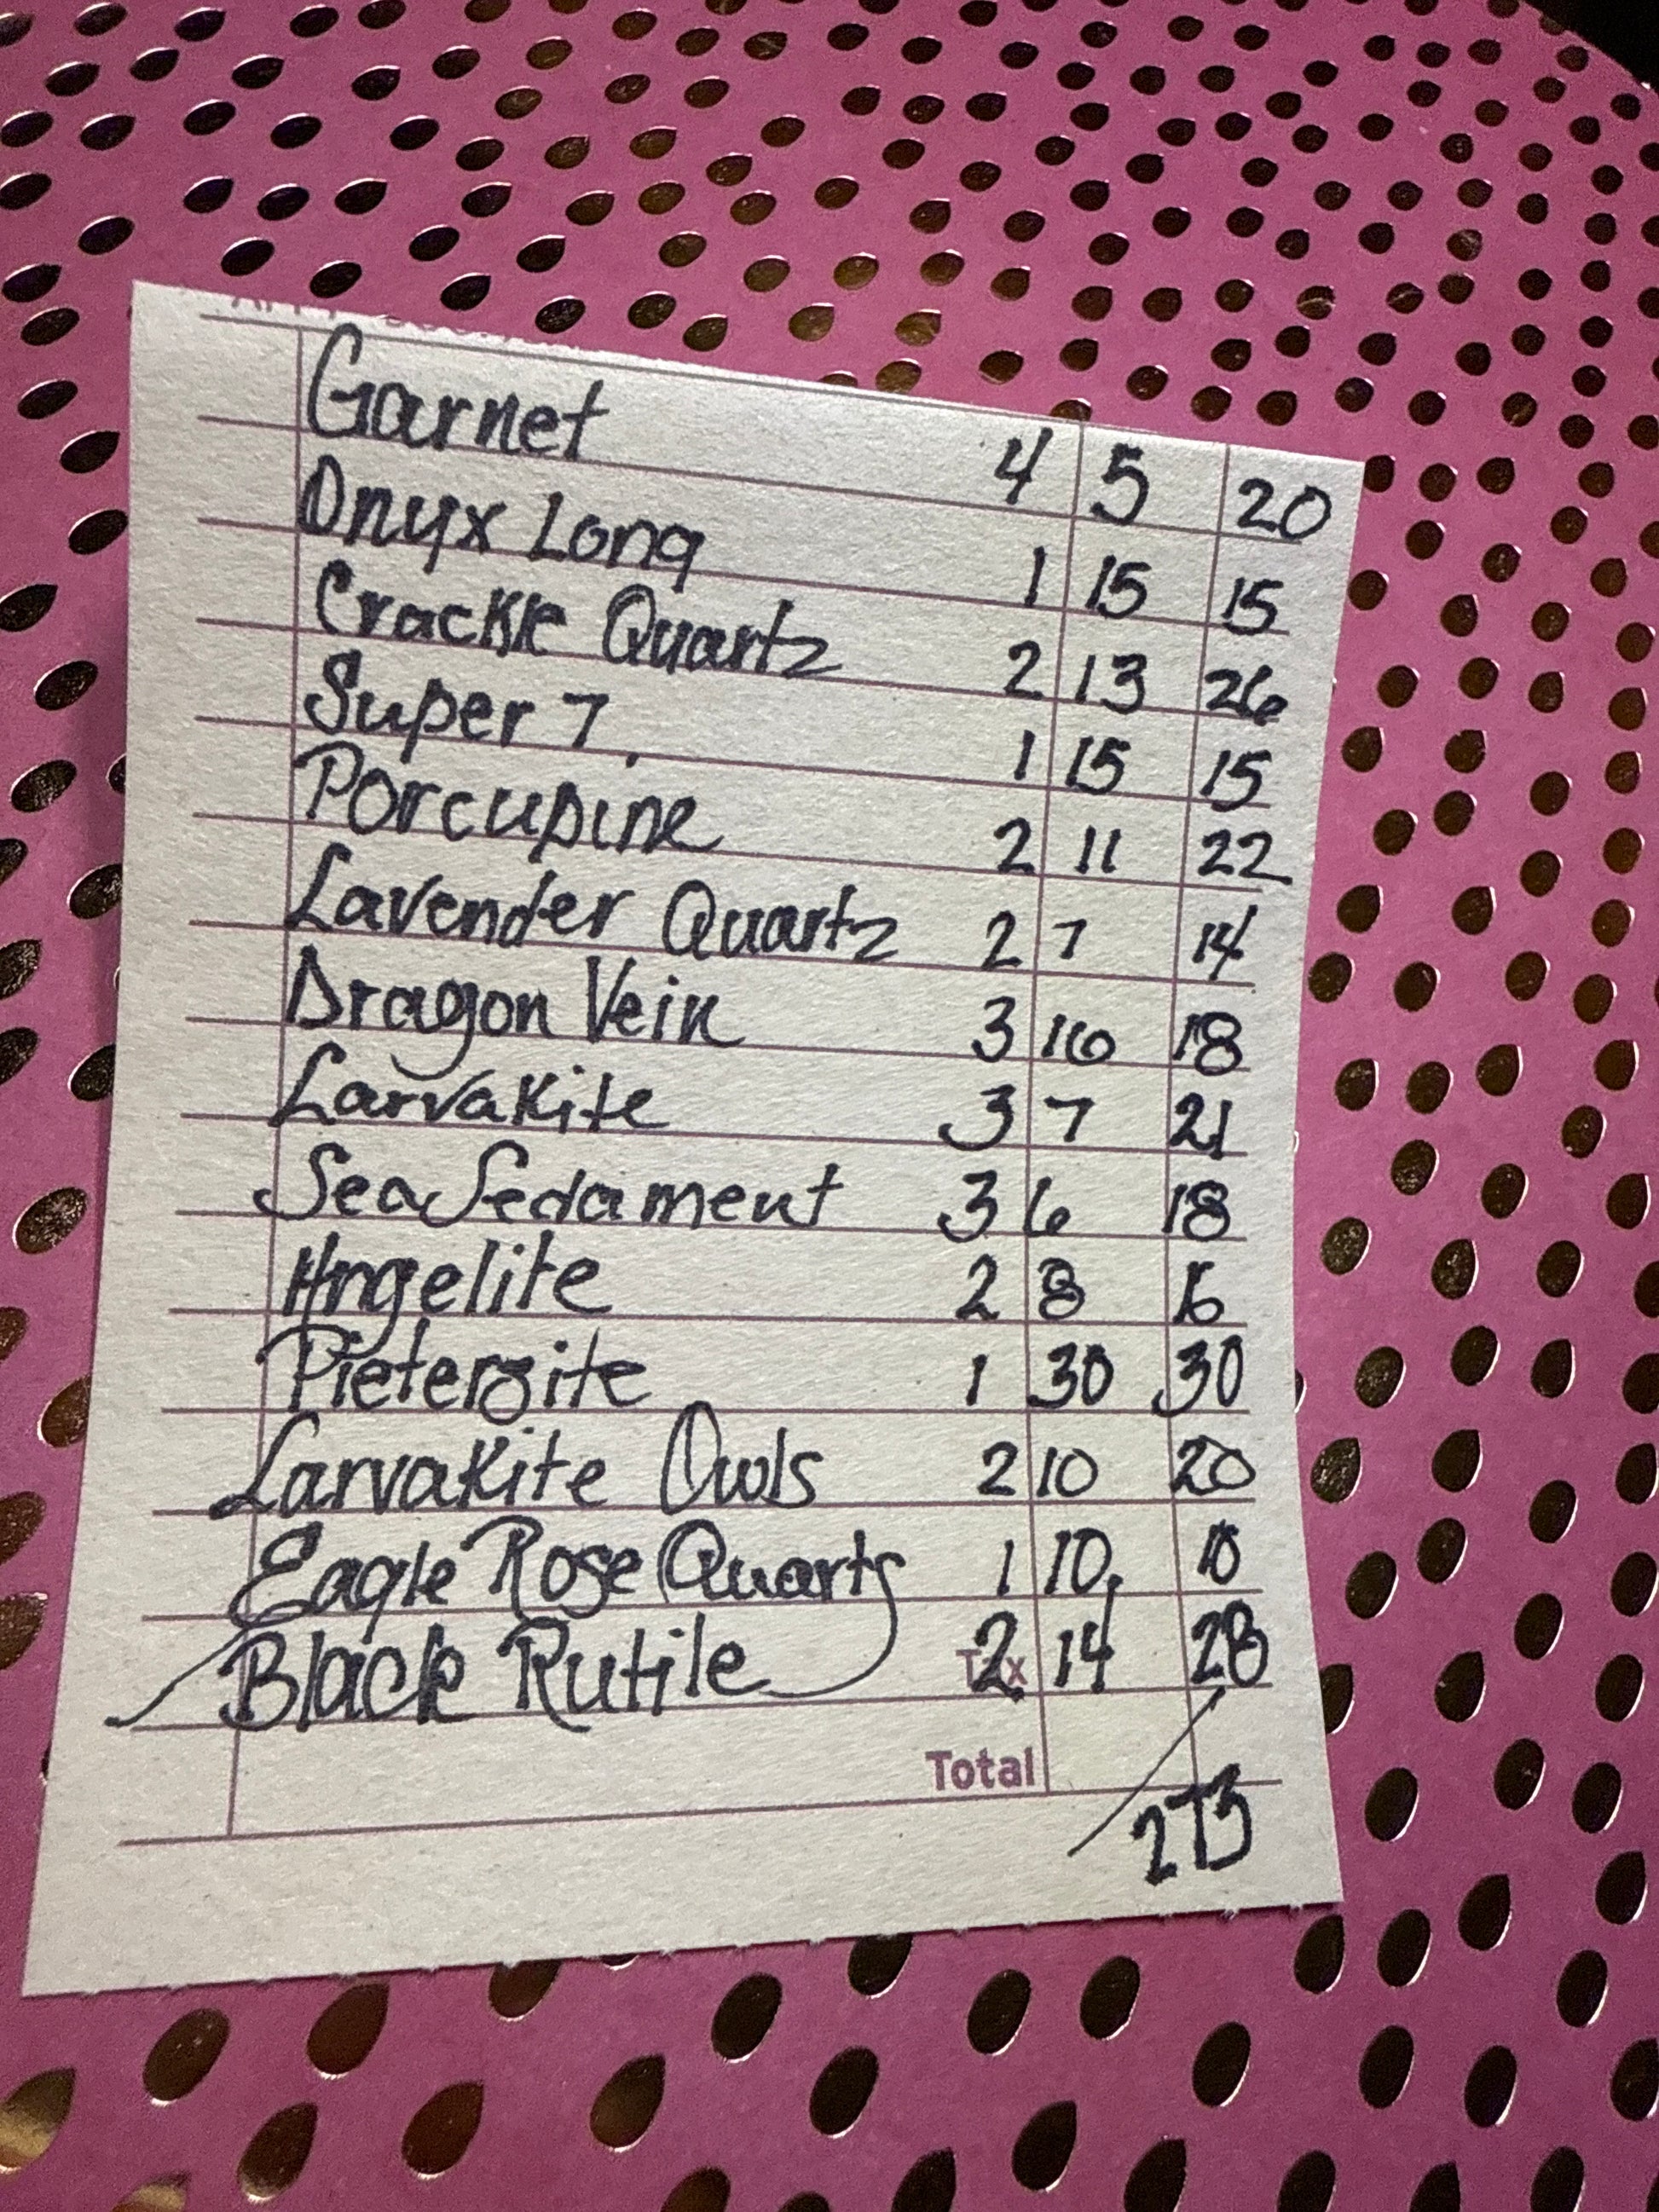 Garnet 4 5 20
Onyx Long 1 15 15
Crackle Quartz 2 13 26
Super 7 1 15 15
Porcupine 2 11 22
Lavender Quartz 2 7 14
Dragon Vein 3 16 18
Larvakite 3 7 21
Sea Sedament 3 6 18
Angelite 2 8 16
Pieterzite 1 30 30
Larvakite Owls 2 10 20
Eagle Rose Quarts 1 10 10
Black Rutile Tax 2 14 28
Total
273